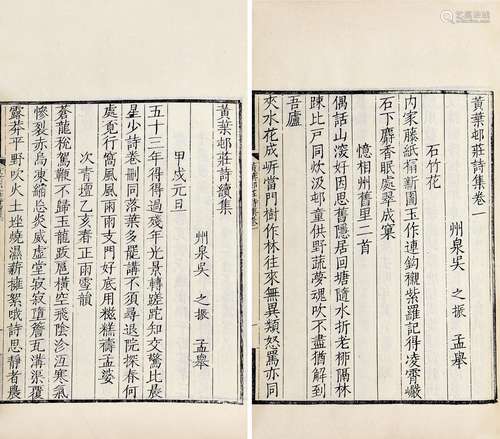 黃葉邨莊詩集卷一
州泉吳 之振 孟舉
石竹花
內家藤紙搨新圖玉作連鉤襯紫羅記得凌霄巖
石下麝香眠處翠成窠
憶相州舊里二首
偶話山滚好因思舊隱居回塘隨水折老栁隔林
踈比戸同炊汲邨童供野蔬夢魂吹不盡猶解到
吾廬
夾水花成當門樹作林往來無異類怒罵亦同
黃葉邨莊詩續集
州泉吳 之振 孟舉
甲戌元旦
五十三年得得過殘年光景轉蹉跎知交驚比晨
星少詩卷刪同落葉多擺講不須尋退院探春何
處覓行窩風風雨雨支門好底用糍糕禱孟婆
次青壇乙亥春正雨雪韻
蒼龍稅駕鞭不歸玉龍政扈橫空飛陰沴沍寒氣
慘裂赤烏凍縮炎威虛堂寂寂頂簷瓦溝渠覆
露莽平野吹火土燒濕薪擁絮哦詩思靜者